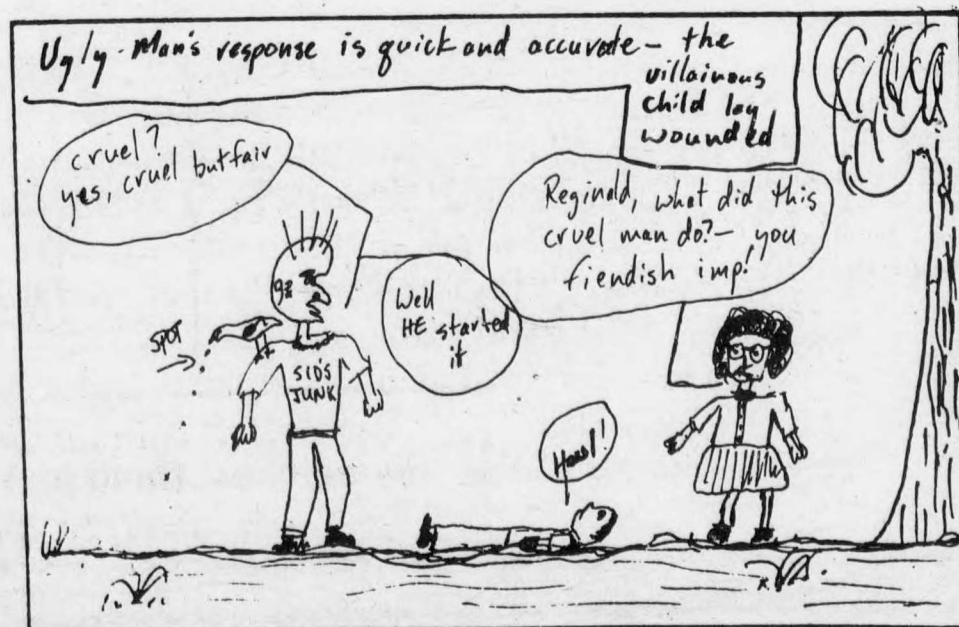 Ugly Man's response is quick and accurate - the
villainous
child lay
wounded
cruel?
yes, cruel but fair
Reginald, what did this
cruel man do? - you
fiendish imp!
Well
HE started
it
SPOT
SID'S
JUNK
Howl!